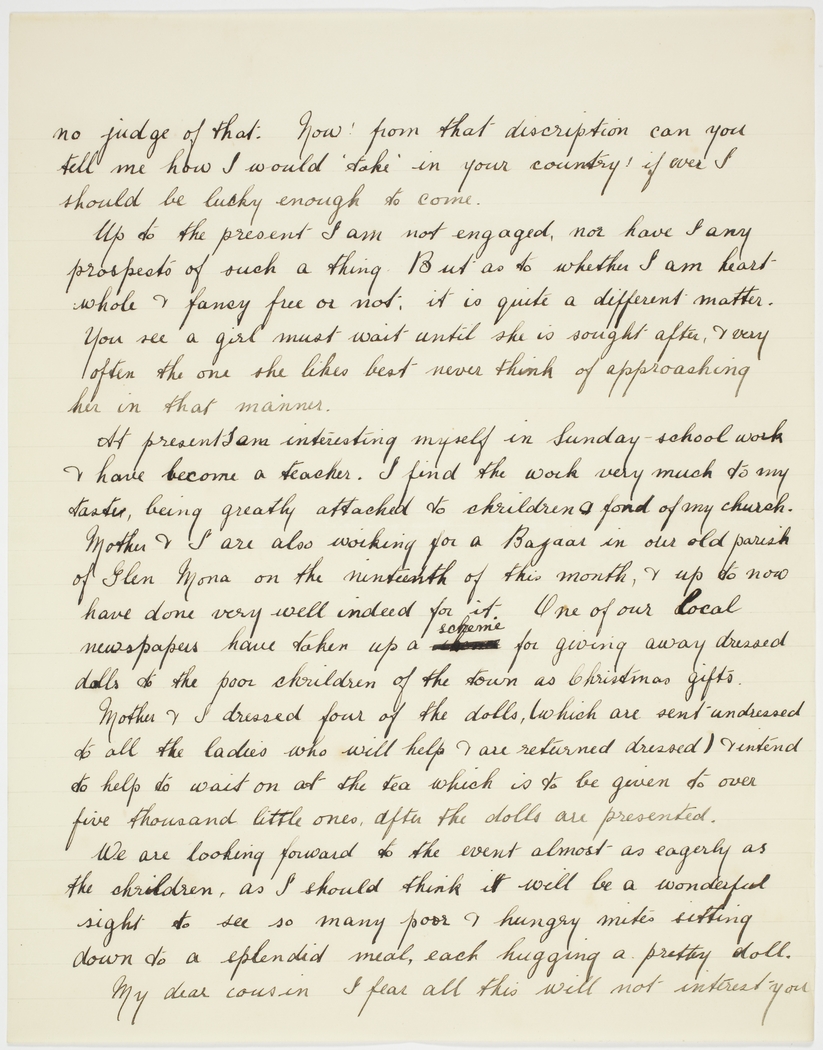 no judge of that. Now! from that discription can you
tell me how I would 'take' in your country! if ever I
should be lucky enough to come.
Up to the present I am not engaged, nor have I any
prospects of such a thing. But as to whether I am heart
whole & fancy free or not, it is quite a different matter.
You see a girl must wait until she is sought after, & very
often the one she likes best never think of approaching
her in that manner.
At present I am interesting myself in Sunday-school work
& have become a teacher. I find the work very much to my
taste, being greatly attached to chrildren & fond of my church.
Mother & I are also working for a Bazaar in our old parish
of Glen Mona on the ninteenth of this month, & up to now
have done very well indeed for it. One of our local
newspapers have taken up a scheme for giving away dressed
dolls to the poor chrildren of the town as Christmas gifts.
Mother & I dressed four of the dolls, (which are sent undressed
to all the ladies who will help & are returned dressed) & intend
to help to wait on at the tea which is to be given to over
five thousand little ones, after the dolls are presented.
We are looking forward to the event almost as eagerly as
the chrildren, as I should think it will be a wonderful
sight to see so many poor & hungry mites sitting
down to a splendid meal, each hugging a pretty doll.
My dear cousin I fear all this will not interest you